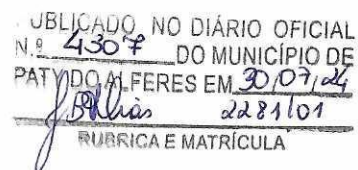 UBLICADO NO DIÁRIO OFICIAL
N.º 4307 DO MUNICÍPIO DE
PATY DO ALFERES EM 30/07/24
2281/01
RUBRICA E MATRÍCULA